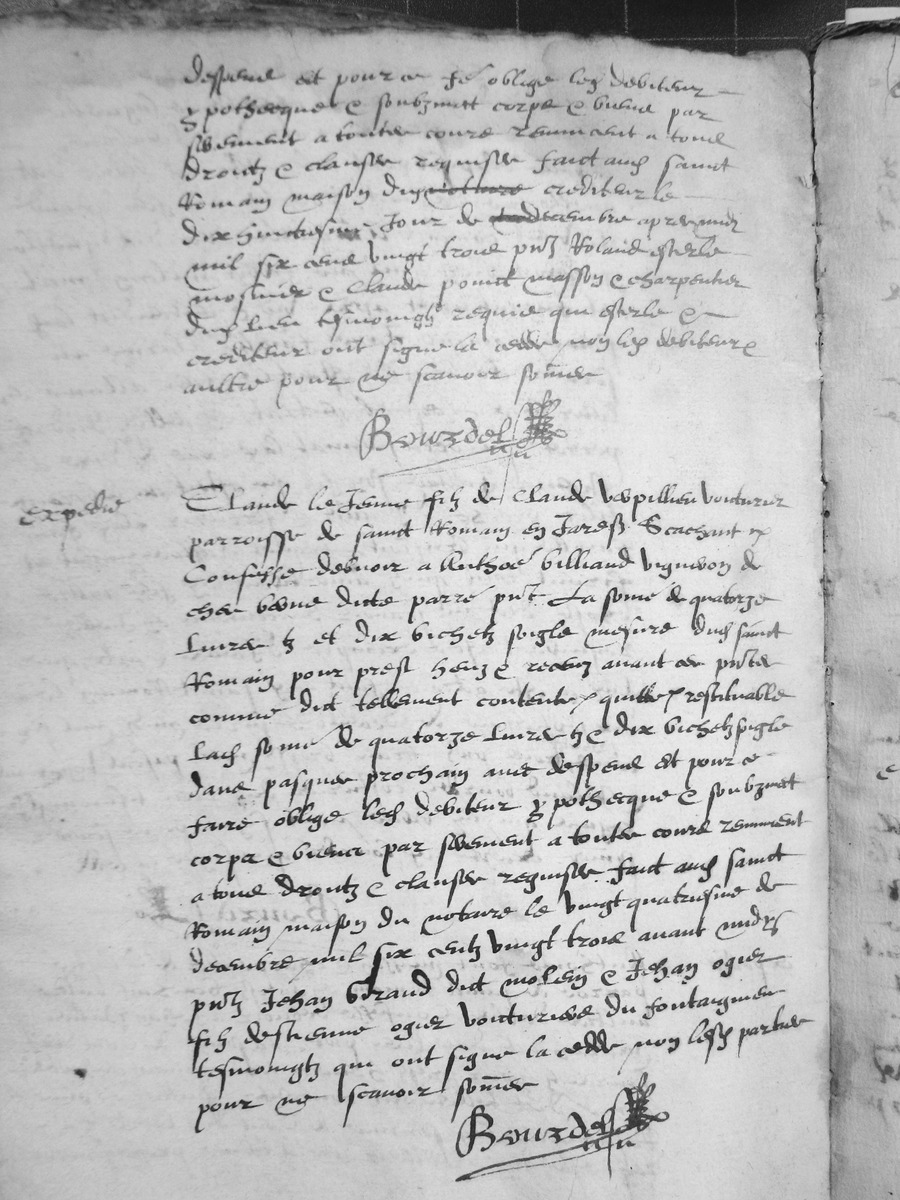 despens et pour ce fe oblige led debiteur
ypothecque & soubzmect corps & biens par
serement a toutes cours renuncent a tous
droictz & clauses requises faict aud sainct
Romain maison dud notaire crediteur le
dix huictiesme Jour de decembre apres midy
mil six cens vingt trois pntz Roland esterle
mosnier & Claude poinct masson & charpentier
dud lieu tesmoingtz requis qui esterle &
crediteur ont signe la cedde non led debiteur
aultre pour ne scavoir somme
Bourdel
Expedie
Claude le Jeune filz de Claude verpillieu voicturier
parroisse de sainct Romain en Jarestz Scachant &
Confesse debvoir a Anthoe billiaud vigneron de
ches dicte parre pnt La some de quatorze
Livres tz et dix bichetz soigle mesure dud sainct
Romain pour prest heuz & receuz avant ces pntes
comme dict tellement contente & quitte & restituable
Lad some de quatorze Livres tz & dix bichetz sigle
dans pasques prochain avec despens et pour ce
faire oblige led debiteur ypothecque & soubzmect
corps & biens par serement a toutes cours renuncent
a tous droictz & clauses requises faict aud sainct
Romain maison du notaire le vingt quatriesme de
decembre mil six centz vingt trois avant midy
pntz Jehan Giraud dict molein & Jehan ogier
filz destienne ogier voicturiers du
tesmoingtz qui ont signe la cedde non lesd parties
pour ne scavoir sommes
Bourdel